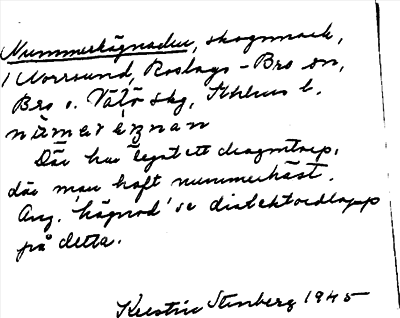 Nummerhägnaden, skogsmark,
1 Norrsund, Roslags-Bro sn,
Bro o. Vätö skg, Sthlms l.
Där har legat ett dragontorp,
där man haft nummerhäst.
Ang. 'hägnad' se dialektordlapp
på detta.
Kerstin Stenberg 1945